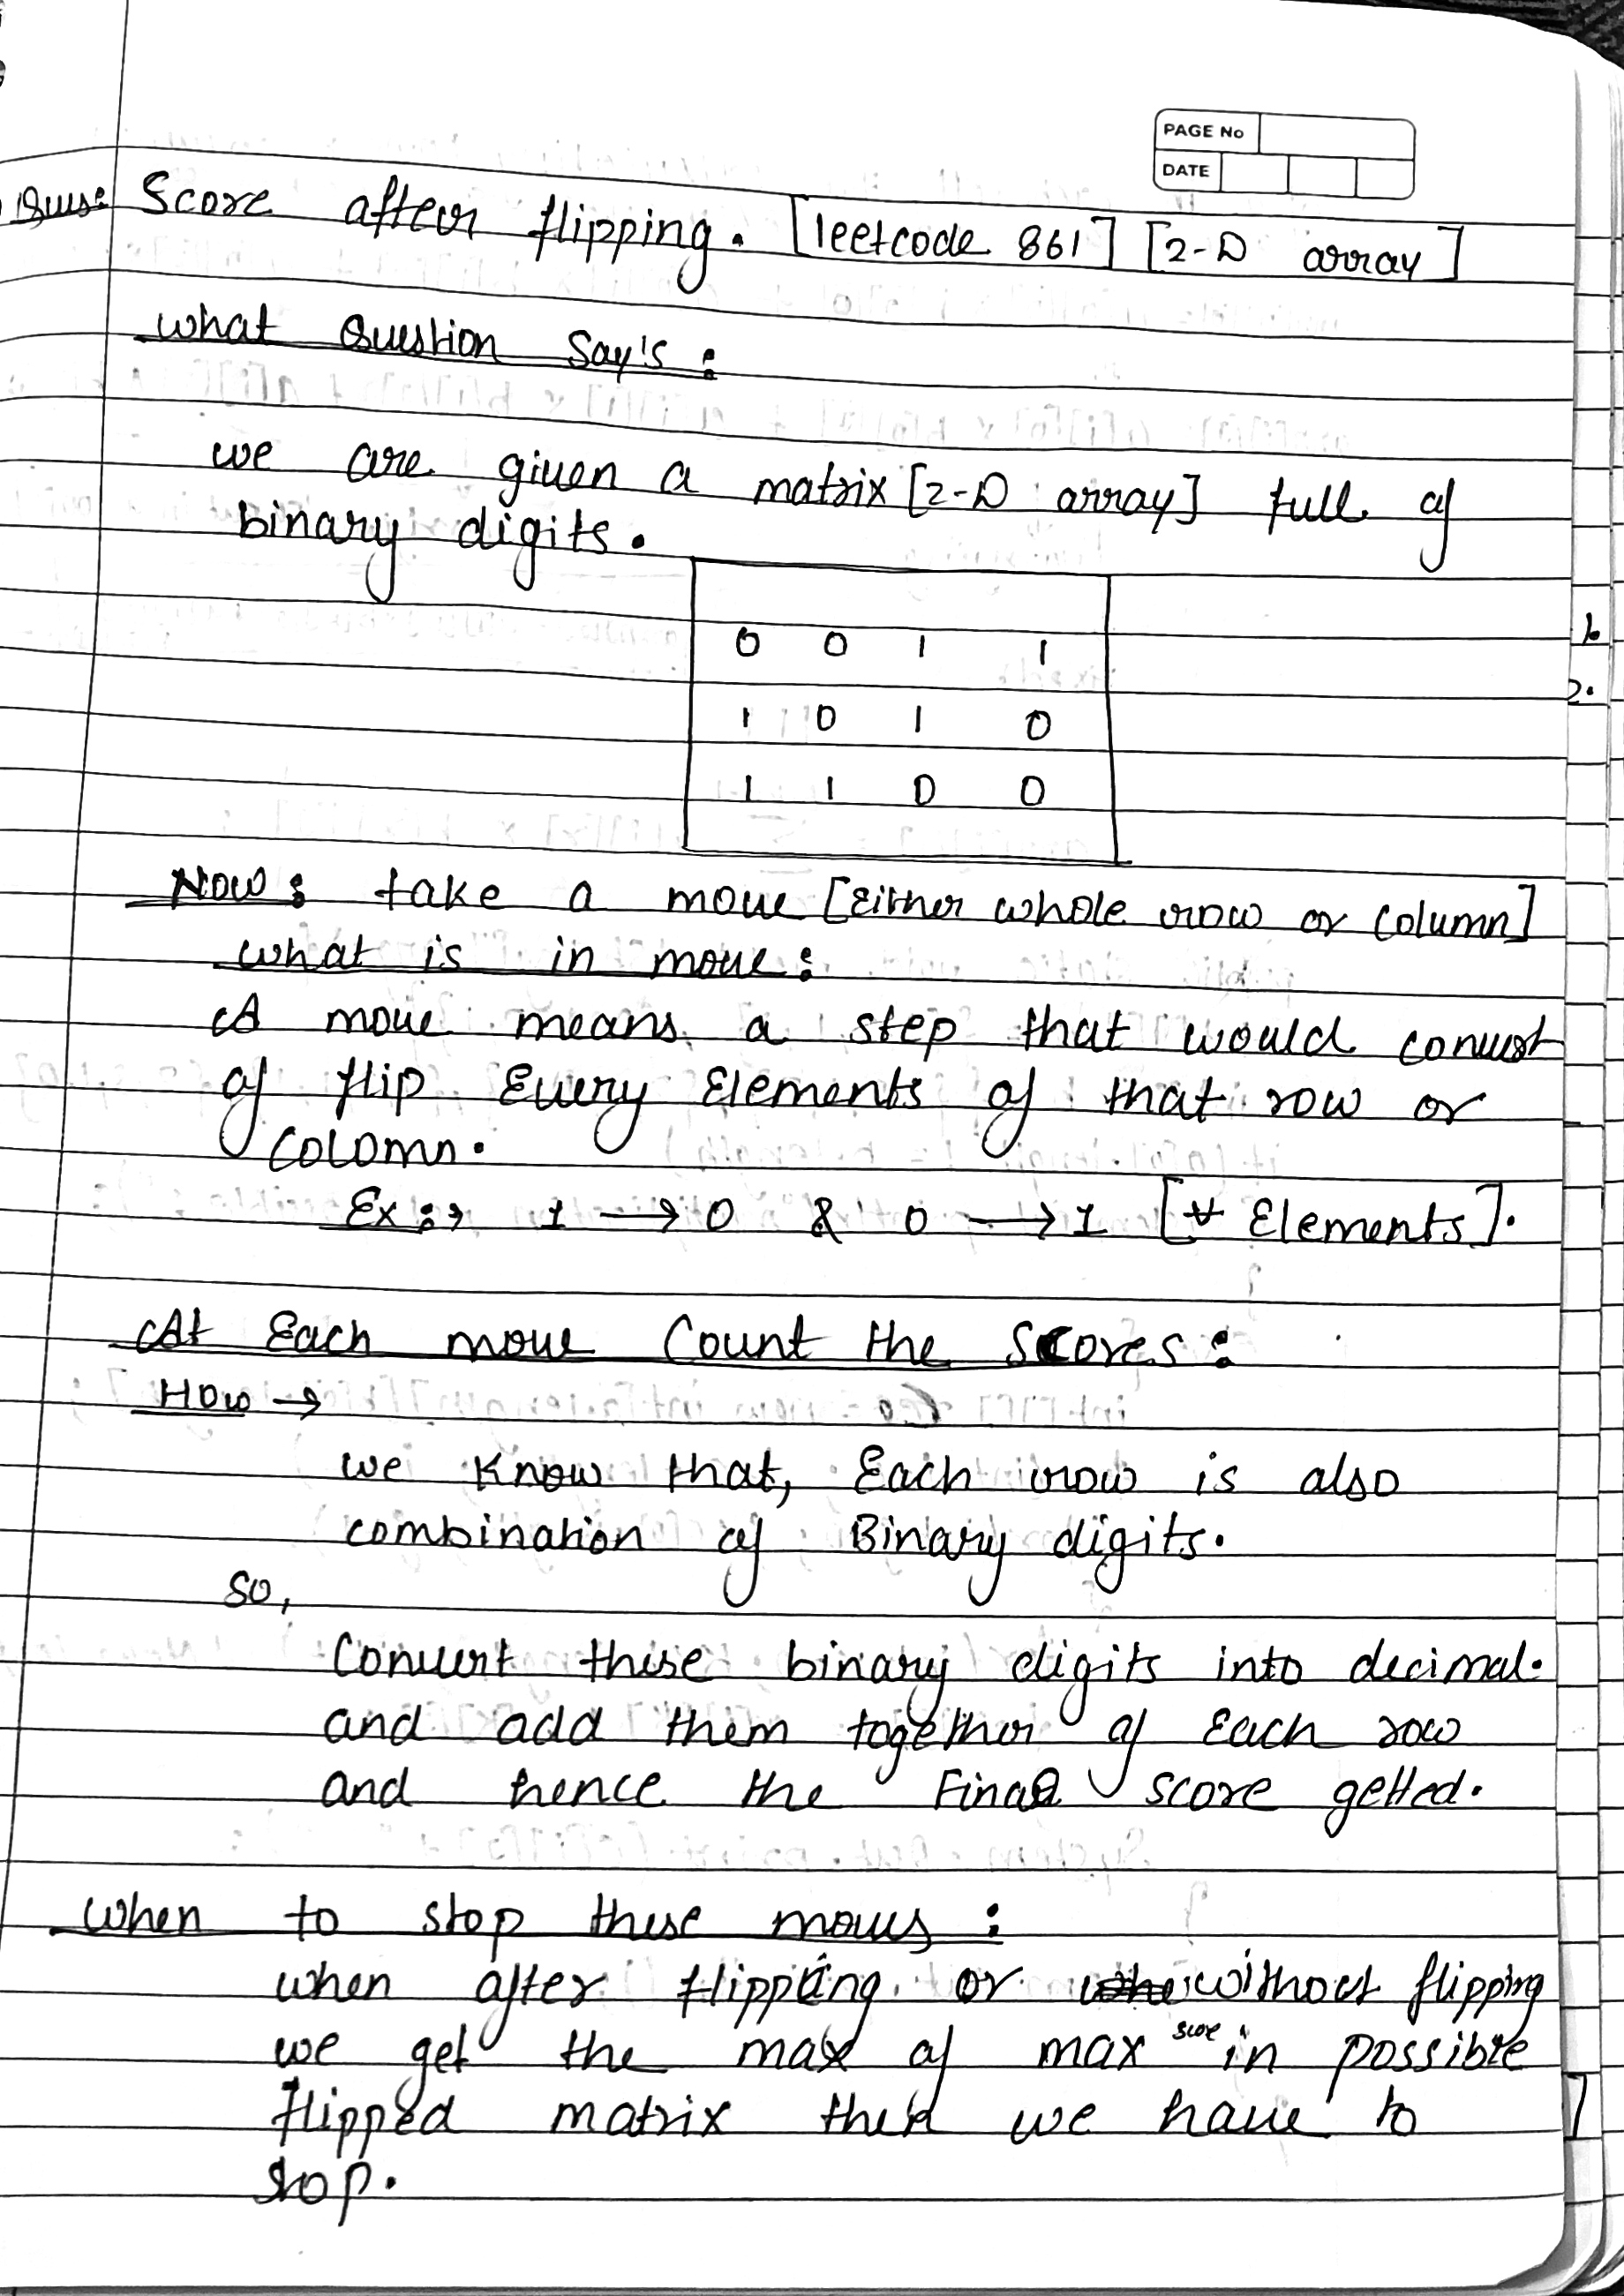 PAGE No
DATE
Ques: Score after flipping. [leetcode 861] [2-D array]
what Question Say's :
we are given a matrix [2-D array] full of
binary digits.
0 0 1 1
1 0 1 0
1 1 0 0
Now: take a move [Either whole row or Column]
what is in move:
A move means a step that would convert
of flip Every Elements of that row or
Colomn.
Ex:→ 1 → 0 & 0 → 1 [∀ Elements].
At Each move Count the Scores:
How →
we Know that, Each row is also
combination of Binary digits.
so,
Convert these binary digits into decimal.
and add them together of Each row
and hence the Final score getted.
when to stop these moves :
when after flipping or without flipping
we get the max of max score in possible
flipped matrix then we have to
stop.
1.
2.